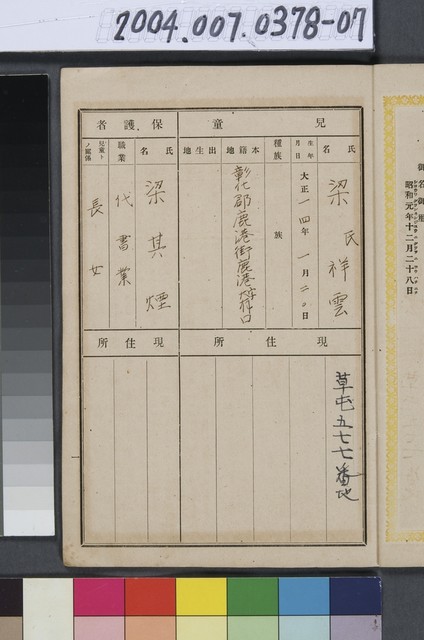 2004.007.0378-07
御名御璽
昭和元年十二月二十八日
兒童
氏名
梁氏祥雲
生年月日
大正一四年一月二〇日
種族
族
本籍地
彰化郡鹿港街鹿港
出生地
保護者
氏名
梁其煙
職業
代書業
兒童トノ關係
長女
現住所
草屯五七七番地
現住所